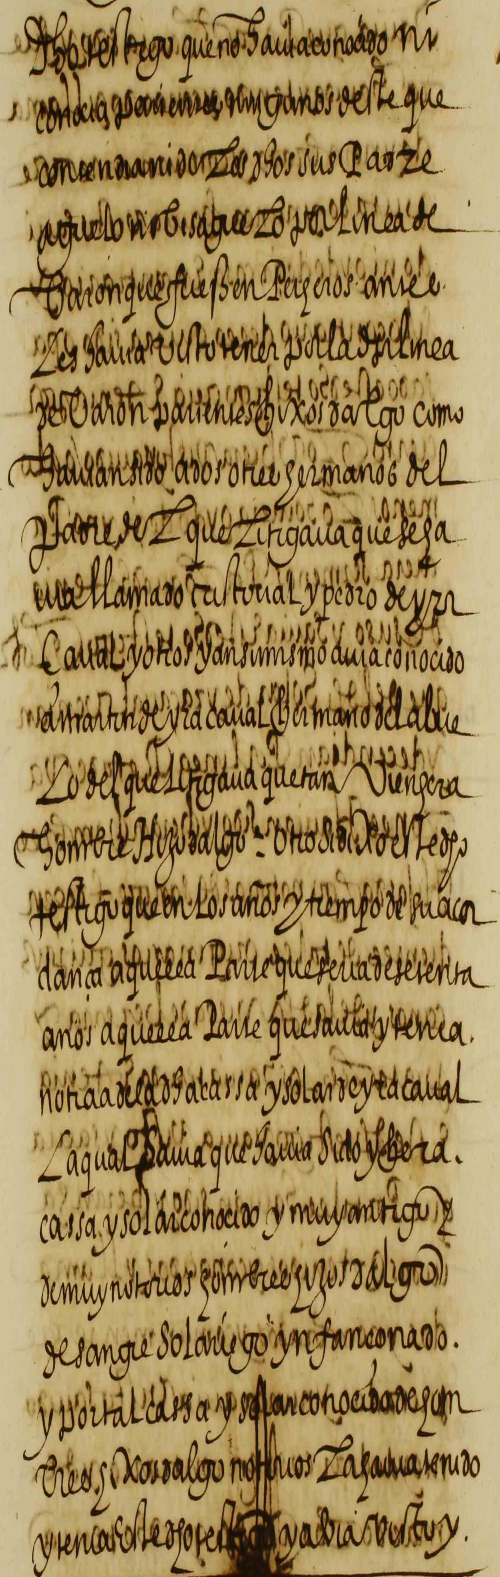 dho testigo que no havia conocido ni
conocia parientes ningunos deste que
contendia ni de los dhos sus Padre
aguelo ni bisaguelo por linea de
Varon que fuesen Pecheros antes
les havia visto tener por la dha linea
de Varon parientes hixosdalgo como
havian sido a dos otros hermanos del
Padre de l que litigava que se ha
via llamado cristoval y pedro de yza
Caval y otros y ansimismo avia conocido
a martin de yza caval hermano del abue
lo del que litigava que tan vien hera
hombre Hijodalgo otrosi dixo este dho
testigo que en los años y tiempo de su acor
dança a aquella Parte que seria de setenta
años a aquella Parte que savia y tenia
noticia de la dha cassa y solar de yza caval
La qual savia que havia sido y hera
cassa y solar conocido y muy antiguo y
de muy notorios hombres hijosdalgo
de sangre solariego ynfançonado.
y por tal cassa y solar conocida de hom
bres hixosdalgo notorios la havia tenido
y tenia este dho testigo y avia visto y.